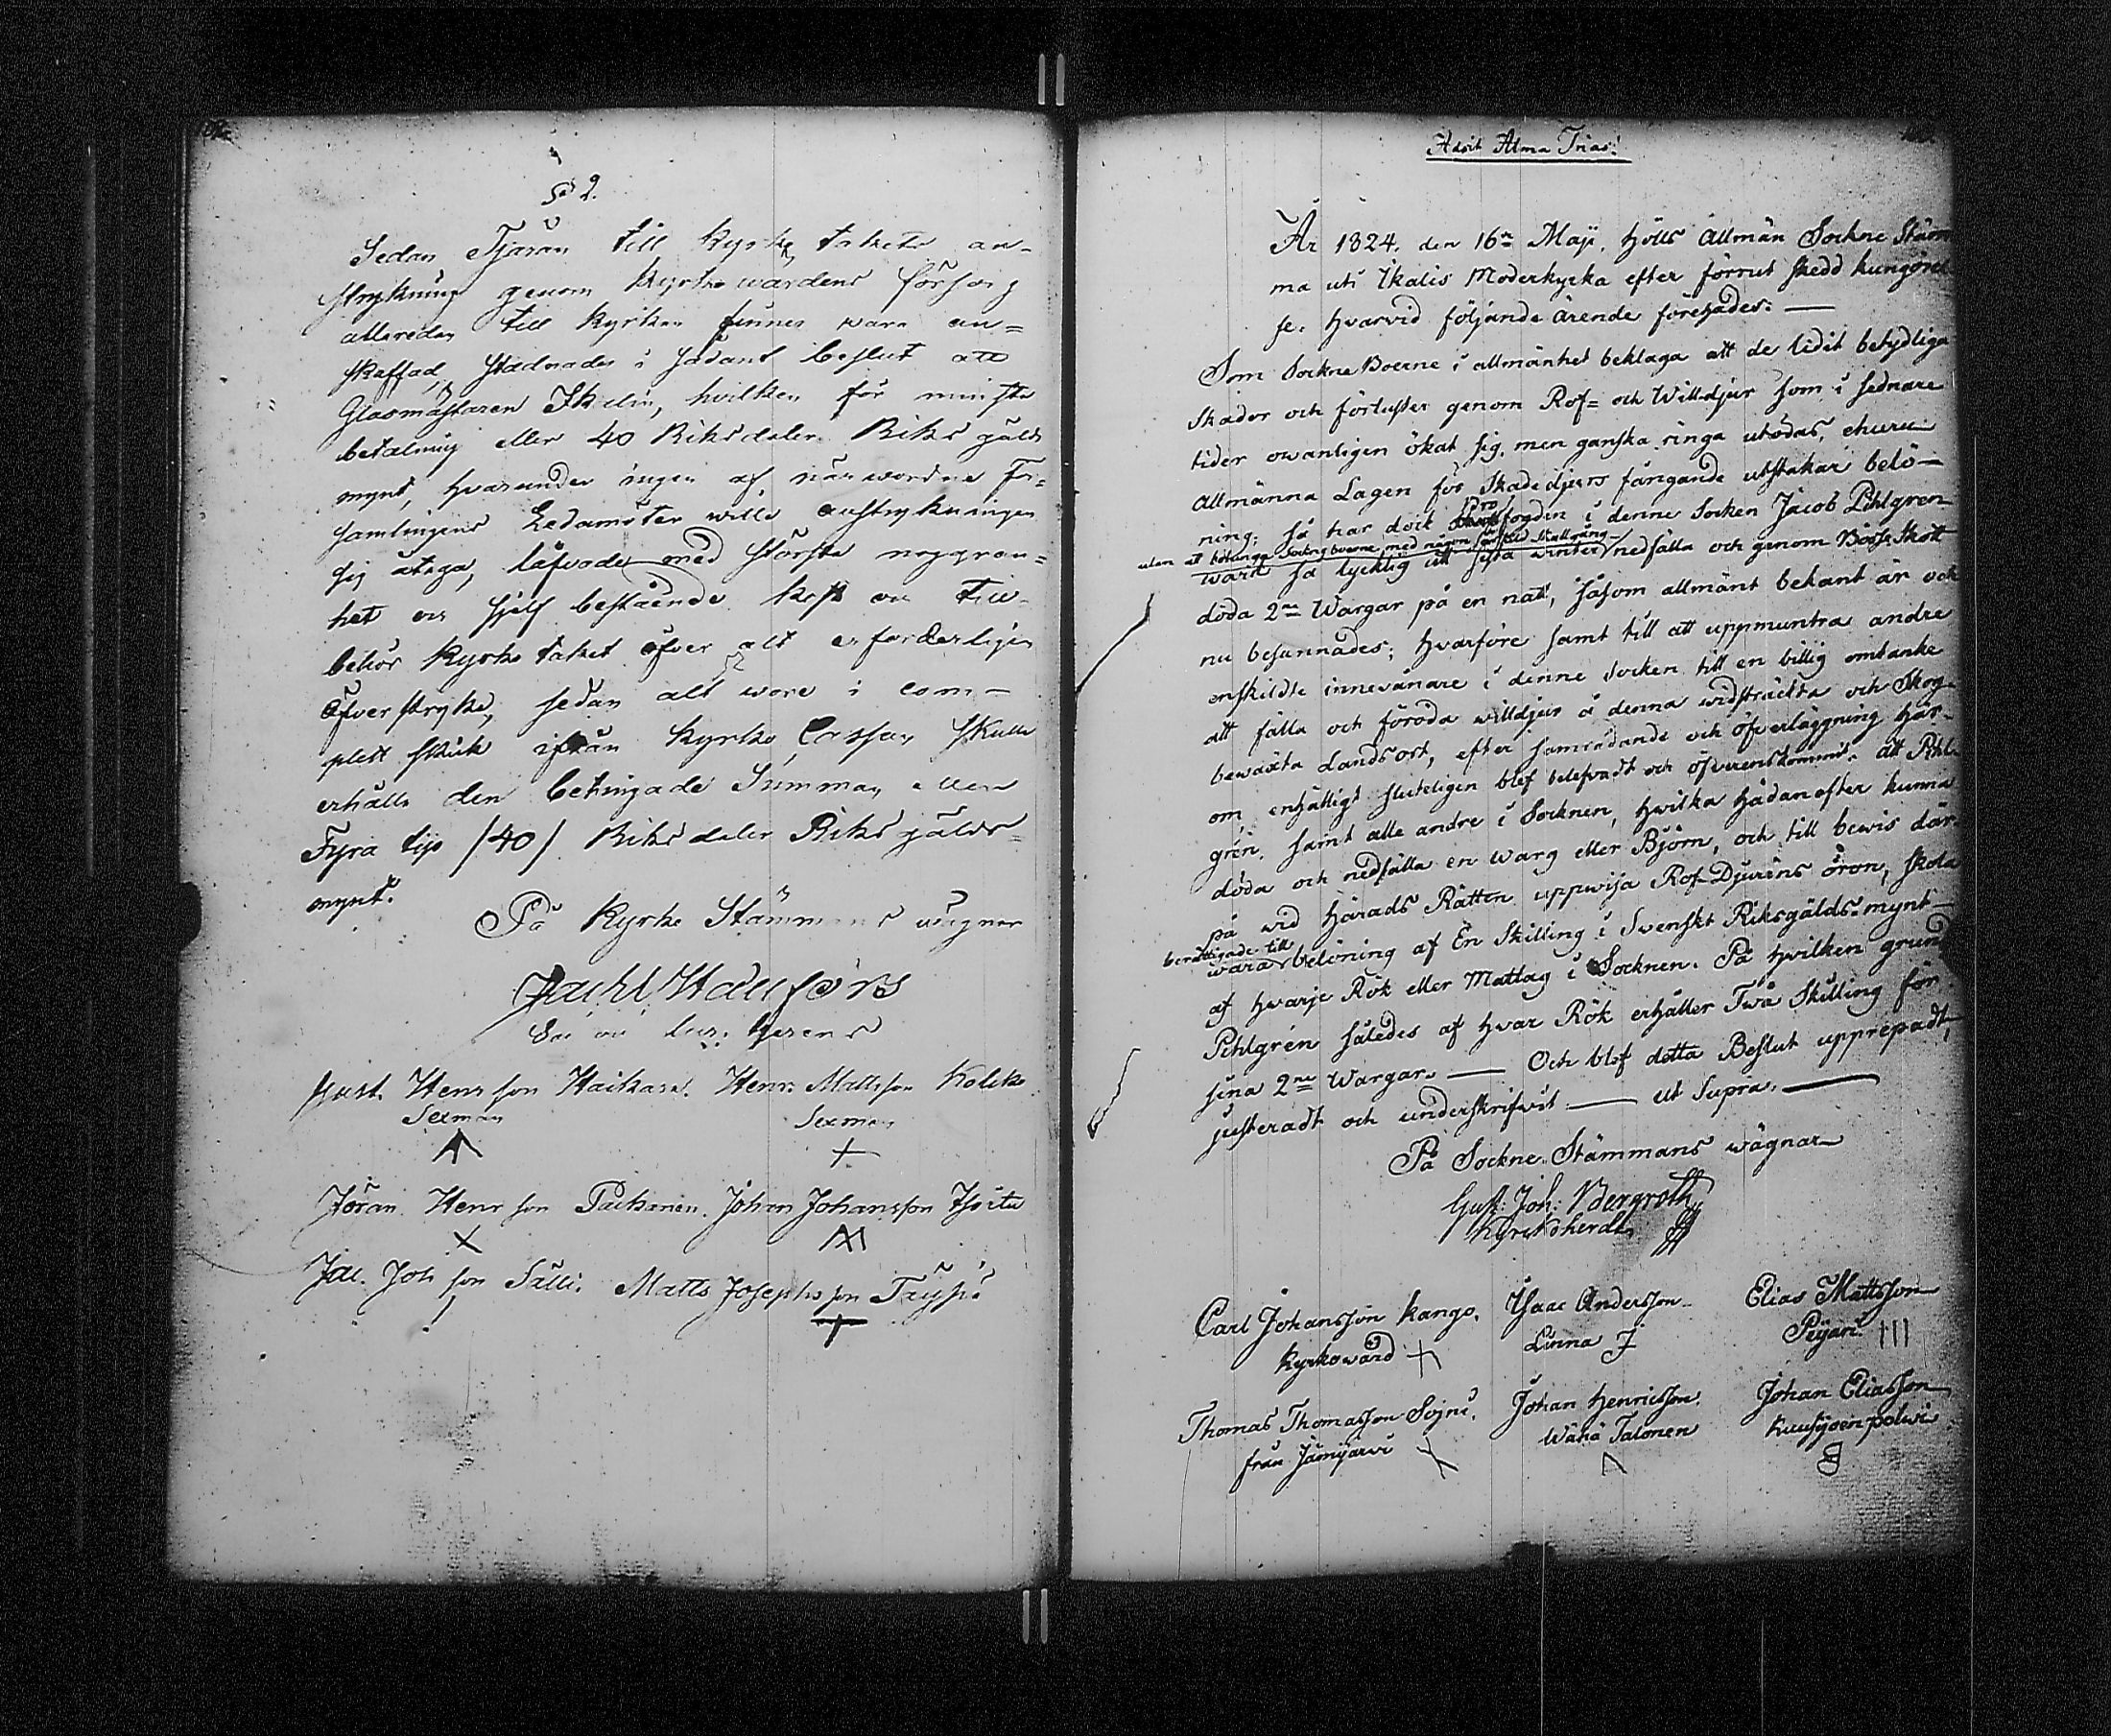 § 2.
Sedan Tjäran till Kyrko takets an-
strykning genom Kyrkowärdens försorg
allaredan till Kyrkan finnes wara an=
skaffad, stadnades i sådant beslut att
Glasmästaren Ikalin, hvilken för minsta
betalning eller 40 Riksdaler Riks gälds
mynt, hvarunder ingen af närwarande För=
samlingens Ledamöter wille anstrykningen
sig åtaga, låfvade med största noggran=
het och sjelf bestående kost och till-
behör Kyrko taket öfver alt erforderligen
öfverstryka, sedan alt wore i com-
plett skick ifrån Kyrko Cassan skulle
erhålla den betingade Summan eller
Fyra tijo /40/ Riksdaler Riksgälds=
mynt.
På Kyrko Stämmans wägnar
Gust. Henrsson Haikara. Henr. Mattsson Kolcko
Sexman Sexman
Jöran Henrsson Parkanen. Johan Johansson
Jac. Johsson Sälli. Matts Josephsson
Adsit Alma Trias!
År 1824. den 16de Maji, hölls Allmän Sockne Stäm
ma uti Ikalis Moderkyrka efter förrut skedd kungörel
se. hvarvid följande ärende förehades: —
Som Sockne Boerne i allmänhet beklaga att de lidit betydliga
skador och förluster genom Rof= och Willdjur som i sednare
tider owanligen ökat sig, men ganska ringa utödas, ehuru
Allmänna Lagen för Skadedjurs fångande utstakar belö—
ning; så har dock fogden i denne Socken Jacob Pihlgren
utan at betunga Sockneboerne med någon särskild skallgång
warit så lycklig att sista winter nedfälla och genom Bösse Skott
döda 2ne Wargar på en natt, såsom allmänt bekant är och
nu besannades; hvarföre samt till att uppmuntra andre
enskildte innevånare i denne Socken till en billig omtanke
att fälla och föröda willdjur å denna widsträckta och Skog-
bewäxta Landsort, efter samrådande och öfverläggning här-
om enhälligt sluteligen blef belefvadt och öfverenskommit. att Pihl-
gren. samt alle andre i Socknen, hwilka hädanefter kunna
döda och nedfälla en Warg eller Björn, och till bewis där-
på wid Härads Rätten uppwisa Rof-Djurens öron, skola
berättigade till
wara belöning af En Skilling i Svenskt Riksgälds-mynt—
af hwarje Rök eller Matlag i Socknen. På hwilken grund
Pihlgren således af hvar Rök erhåller Twå Skilling för
sina 2ne Wargar. — Och blef detta Beslut upprepadt,
justeradt och underskrifwit — ut Supra. —
På Sockne Stämmans wägnar
Gust. Joh: Bergroth
Kyrkoherde
Carl Johansson Kango. Isaac Andersson Elias Mattsson
Kyrkowärd Linna Peijari
Thomas Thomasson Sojni. Johan Henricsson. Johan Eliasson
från Jämijärvi Wähä Talonen